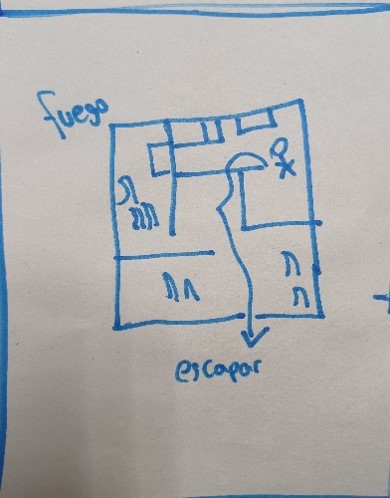 fuego
escapar